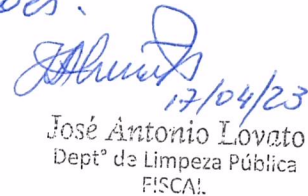 17/04/23
José Antonio Lovato
Deptº de Limpeza Pública
FISCAL